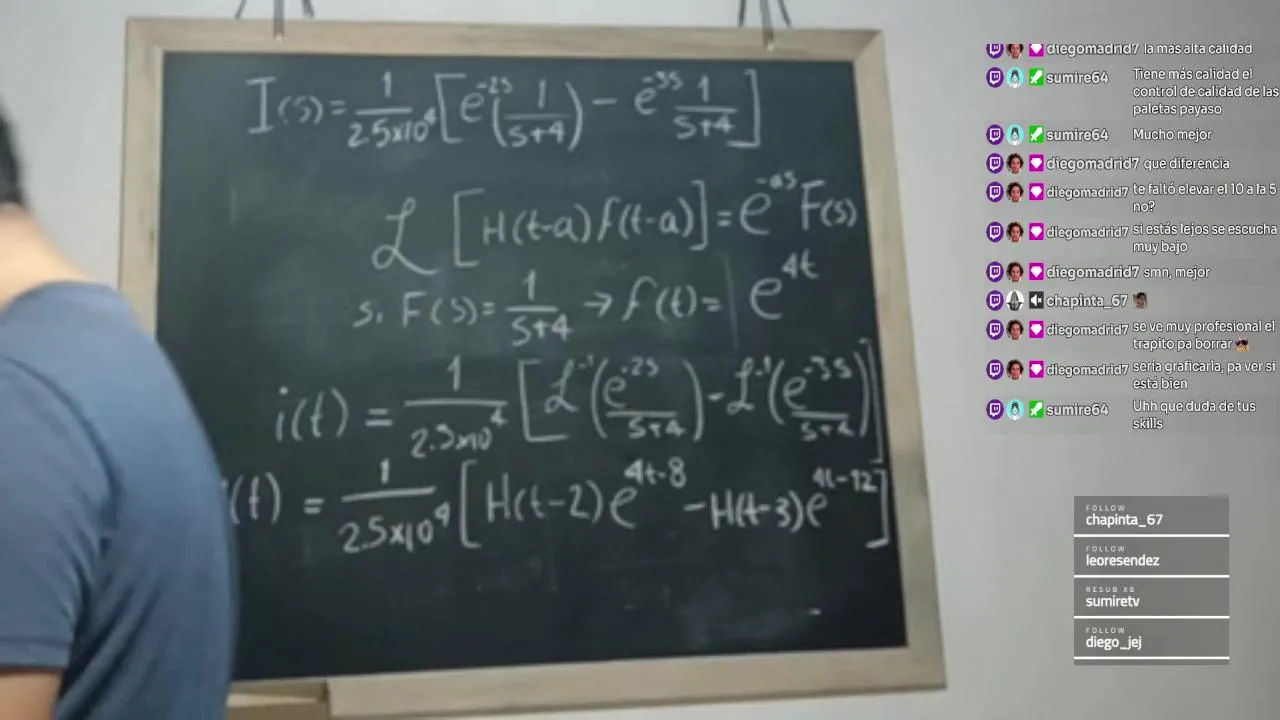 I(s) = 1/2.5x10⁴ [e^-2s (1/s+4) - e^-3s 1/s+4]
ℒ [H(t-a) f(t-a)] = e^-as F(s)
si F(s) = 1/s+4 → f(t) = e^4t
i(t) = 1/2.5x10⁴ [ℒ⁻¹(e^-2s/s+4) - ℒ⁻¹(e^-3s/s+4)]
i(t) = 1/2.5x10⁴ [H(t-2)e^4t-8 - H(t-3)e^4t-12]
diegomadrid7 la mas alta calidad
sumire64 Tiene más calidad el
control de calidad de las
paletas payaso
sumire64 Mucho mejor
diegomadrid7 que diferencia
diegomadrid7 te faltó elevar el 10 a la 5
no?
diegomadrid7 si estás lejos se escucha
muy bajo
diegomadrid7 smn, mejor
chapinta_67
diegomadrid7 se ve muy profesional el
trapito pa borrar
diegomadrid7 sería graficarla, pa ver si
está bien
sumire64 Uhh que duda de tus
skills
FOLLOW
chapinta_67
FOLLOW
leoresendez
RESUB X8
sumiretv
FOLLOW
diego_jej